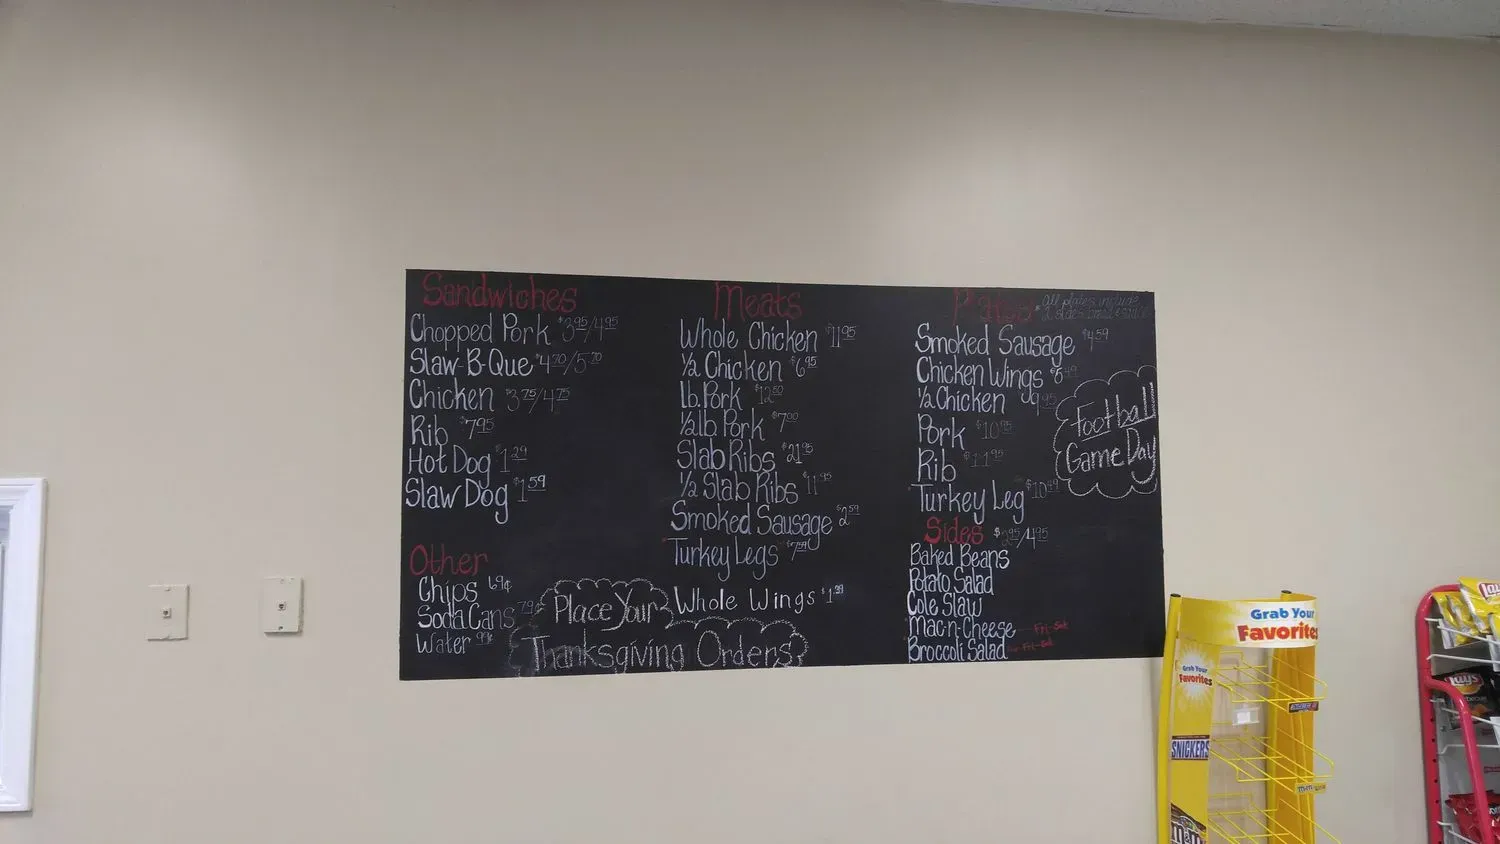 Sandwiches
Chopped Pork $3.95/4.95
Slaw-B-Que $4.20/5.20
Chicken $3.75/4.75
Rib $7.95
Hot Dog $1.29
Slaw Dog $1.59
Other
Chips 69¢
Soda Cans 79¢
Water 99¢
Place Your
Thanksgiving Orders
Meats
Whole Chicken $11.95
1/2 Chicken $6.95
lb. Pork $12.50
1/2 lb. Pork $7.00
Slab Ribs $21.95
1/2 Slab Ribs $11.95
Smoked Sausage $2.59
Turkey Legs $7.59
Whole Wings
Plates *all plates include
2 sides bread &
Smoked Sausage $4.59
Chicken Wings $6.49
1/2 Chicken 9.95
Pork $10.95
Rib $11.95
Turkey Leg $10.49
Football
Game Day
Sides $2.95/4.95
Baked Beans
Potato Salad
Cole Slaw
Mac-n-Cheese Fri-Sat
Broccoli Salad Fri-Sat
Grab Your
Favorites
Grab Your
Favorites
SNICKERS
m&m's
Lay's
Lay's